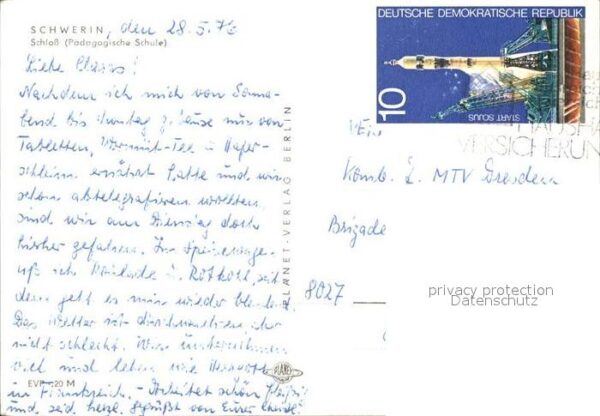 SCHWERIN, den 28.5.76
Schloß (Pädagogische Schule)
Liebe Claras!
Nachdem ich mich von Sonna-
bend bis Montag zuhause nur von
Tabletten, Wermut-Tee u. Hafer-
schleim ernährt hatte und wir
schon abtelegrafieren wollten,
sind wir am Dienstag doch
hierher gefahren. Im Speisewagen
aß ich Roulade u. Rotkohl, seit
dem geht es mir wieder blendend.
Das Wetter ist durchwachsen aber
nicht schlecht. Wir unternehmen
viel und leben wie Herrgott
in Frankreich. - Arbeitet schön fleißig
und seid herzl. gegrüßt von Eurer
EVP 0,20 M
PLANET
PLANET-VERLAG BERLIN
DEUTSCHE DEMOKRATISCHE REPUBLIK
10
START SOJUS
HAUSHA
VERSICHERUN
VEB
Komb. L. MTV Dresden
Brigade
8027
privacy protection
Datenschutz